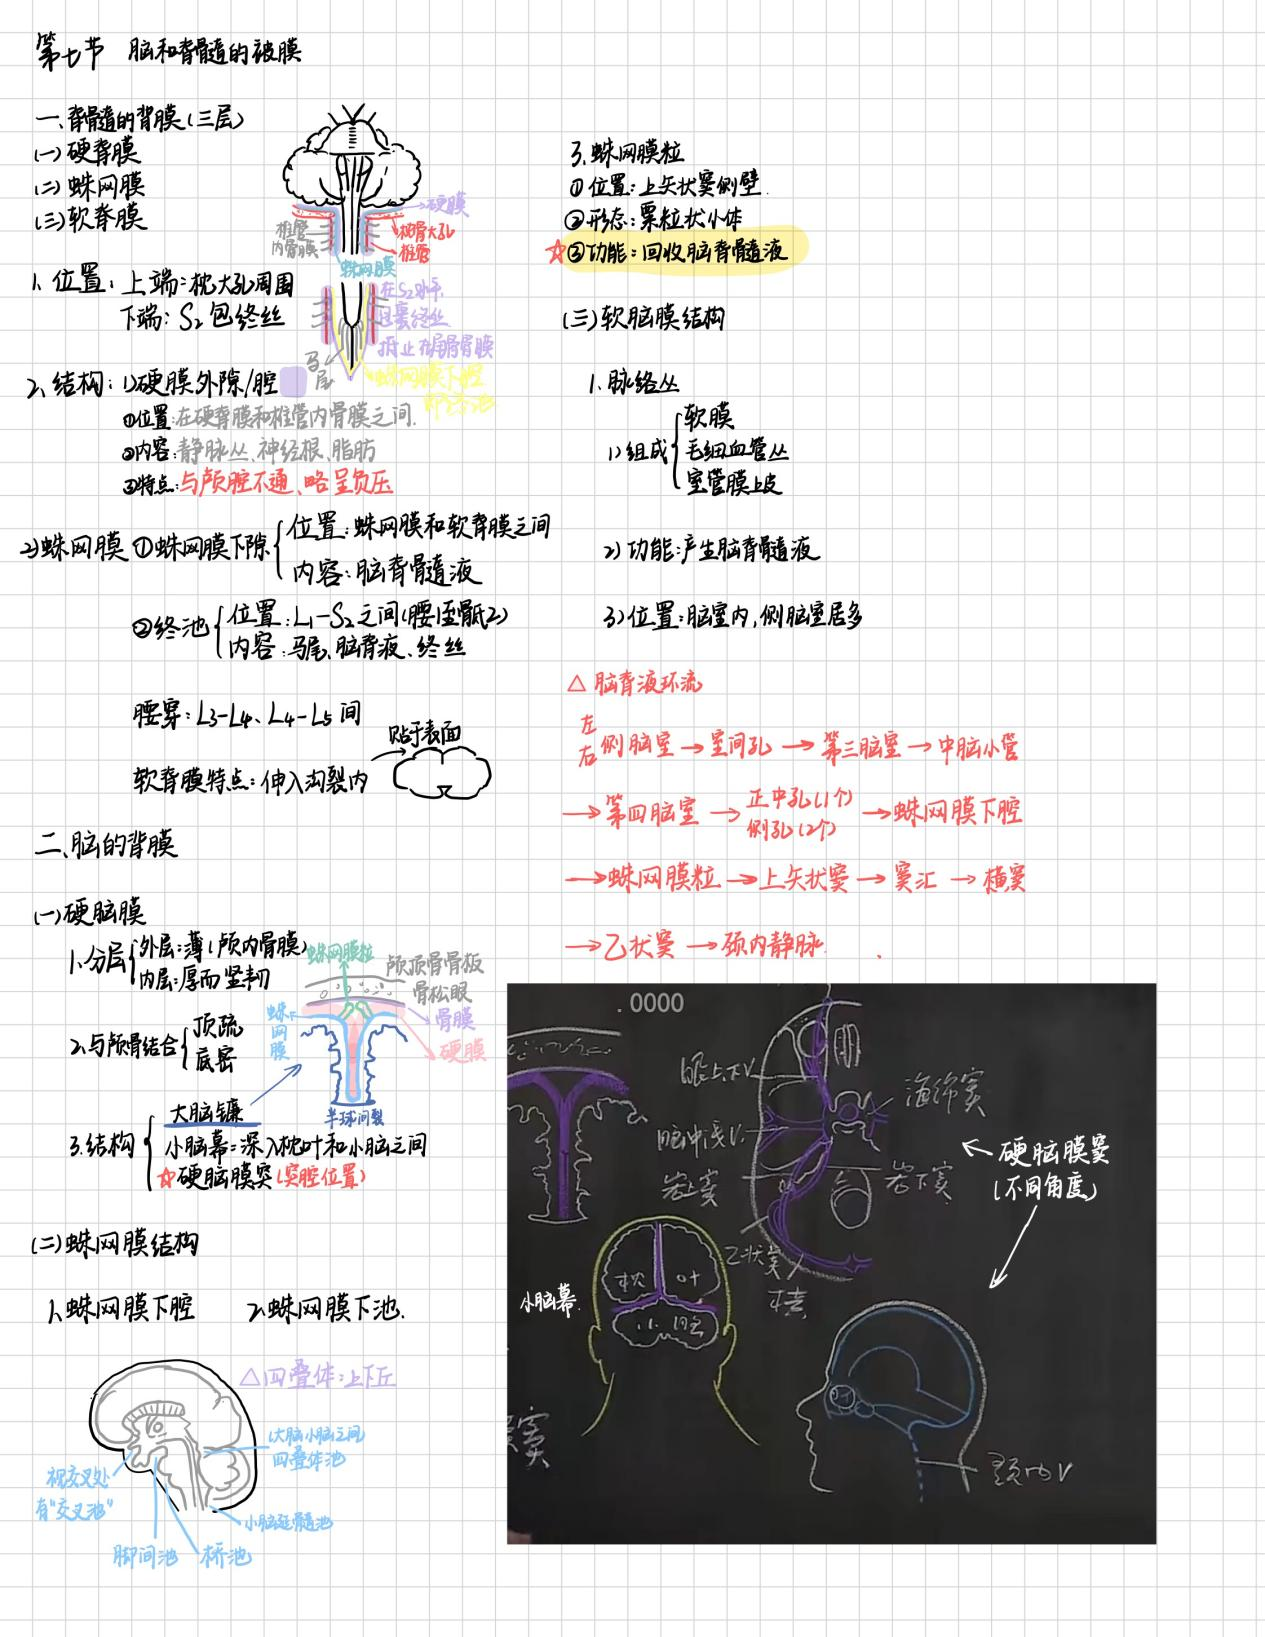 第七节 脑和脊髓的被膜
一、脊髓的背膜(三层)
(一)硬脊膜
(二)蛛网膜
(三)软脊膜
硬膜
椎管
内骨膜
枕骨大孔
椎管
蛛网膜
1、位置:上端:枕大孔周围
下端:S₂包终丝
在S₂水平,
包裹终丝
马
尾
蛛网膜下腔
2、结构:1)硬膜外隙/腔
①位置:在硬脊膜和椎管内骨膜之间.
②内容:静脉丛、神经根、脂肪
③特点:与颅腔不通、略呈负压
2)蛛网膜①蛛网膜下隙
位置:蛛网膜和软脊膜之间
内容:脑脊髓液
②终池
位置:L₁-S₂之间(腰1至骶2)
内容:马尾、脑脊液、终丝
腰穿:L₃-L₄、L₄-L₅间
贴于表面
软脊膜特点:伸入沟裂内
二、脑的背膜
(一)硬脑膜
1、分层
外层:薄(颅内骨膜)
内层:厚而坚韧
蛛网膜粒
颅顶骨骨板
骨松眼
蛛
网
膜
骨膜
硬膜
半球间裂
2、与颅骨结合
顶疏
底密
3、结构
大脑镰
小脑幕=深入枕叶和小脑之间
☆硬脑膜窦(窦腔位置)
(二)蛛网膜结构
1、蛛网膜下腔 2、蛛网膜下池.
△四叠体:上下丘
(大脑小脑之间)
四叠体池
视交叉处
有"交叉池"
小脑延髓池
脚间池 桥池
3、蛛网膜粒
①位置:上矢状窦侧壁.
②形态:粟粒状小体
☆③功能:回收脑脊髓液
(三)软脑膜结构
1、脉络丛
1)组成
软膜
毛细血管丛
室管膜上皮
2)功能:产生脑脊髓液
3)位置:脑室内,侧脑室居多
△ 脑脊液环流
左
右 侧脑室→室间孔→第三脑室→中脑小管
→第四脑室→正中孔(1个)
侧孔(2个)
→蛛网膜下腔
→蛛网膜粒→上矢状窦→窦汇→横窦
→乙状窦→颈内静脉.
.0000
眼上下V
海绵窦
脑中浅V.
岩上窦
岩下窦
乙状窦
横
←硬脑膜窦
(不同角度)
小脑幕.
枕 叶
小脑
窦
颈内V